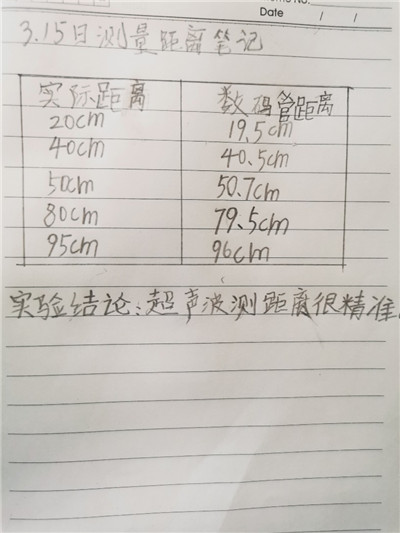 Date / /
3.15日测量距离笔记
实际距离 数码管距离
20cm 19.5cm
40cm 40.5cm
50cm 50.7cm
80cm 79.5cm
95cm 96cm
实验结论:超声波测距离很精准.